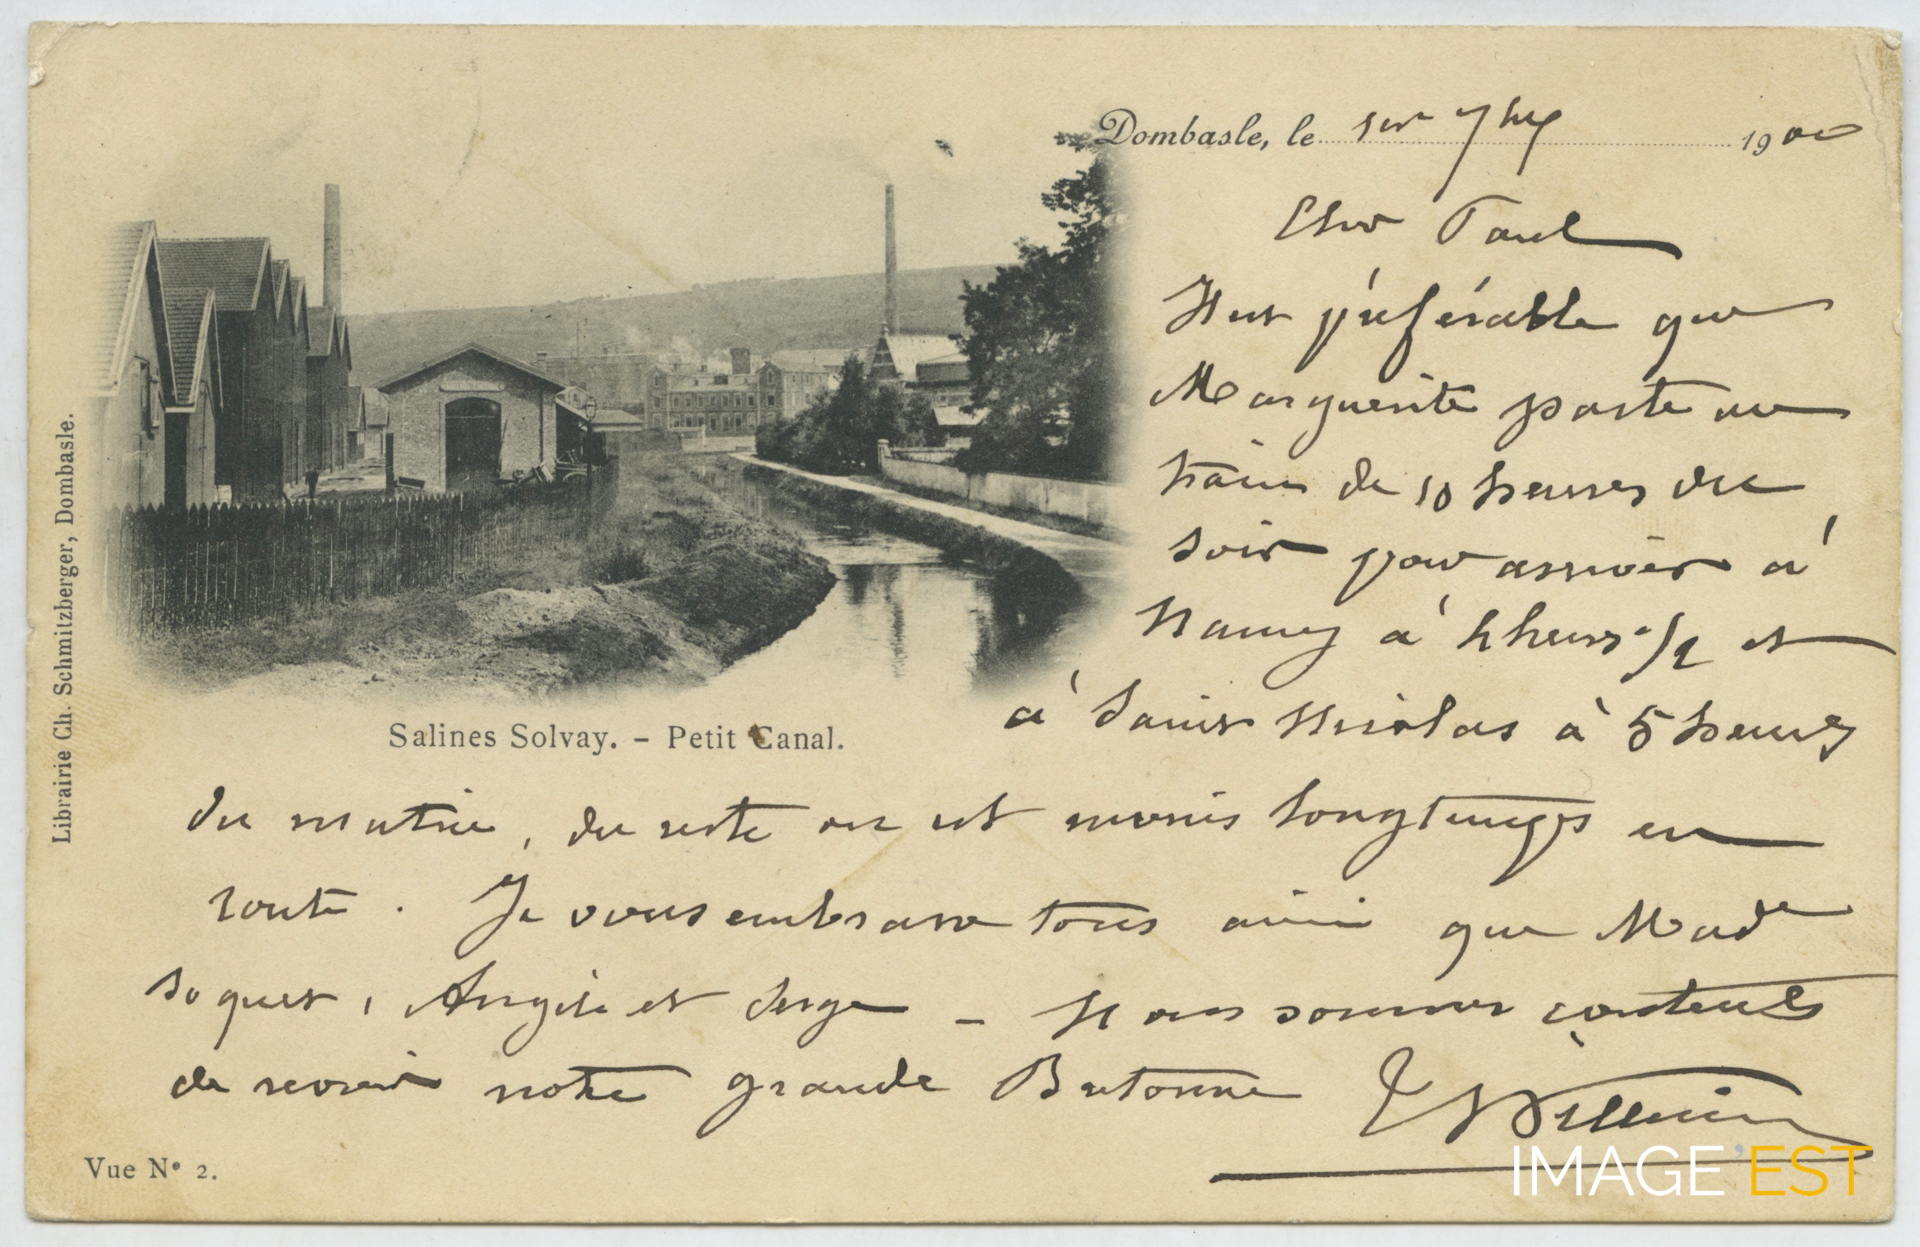 Dombasle, le 1er 7bre 1900
Cher Paul
Il est préférable que
Marguerite parte au
train de 10 heures du
soir pour arriver à
Nancy à 4 heures 1/2 et
à Saint Nicolas à 5 heures
du matin, du reste on est moins longtemps en
route. Je vous embrasse tous ainsi que Made
et Serge - Nous sommes contents
de revoir notre grande Bretonne
Salines Solvay. - Petit Canal.
Librairie Ch. Schmitzberger, Dombasle.
Vue No 2.
IMAGE'EST